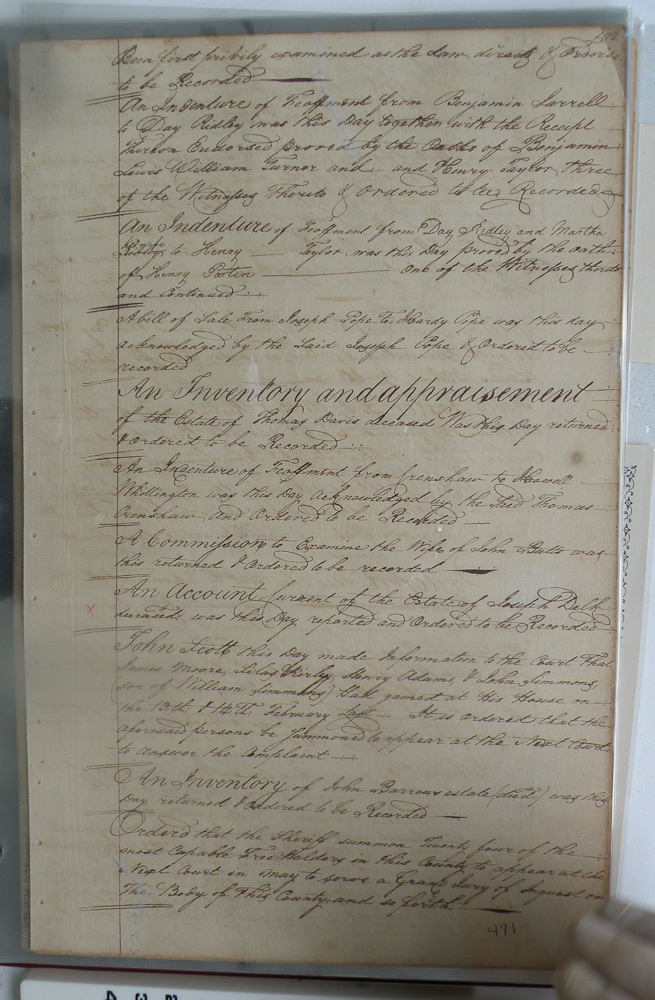 Been first privily examined as the Law directs & Ordered
to be Recorded
An Indenture of Feoffment from Benjamin Sarrell
to Day Ridley was this Day together with the Receipt
thereon Endorsed proved by the Oaths of Benjamin
Lewis William Turner and and Henry Taylor three
of the Witnesses thereto & Ordered to be Recorded
An Indenture of Feoffment from Day Ridley and Martha
his wife to Henry Taylor was this Day proved by the oath
of Henry Porter One of the Witnesses thereto
and Continued
A bill of Sale From Joseph Pope To Hardy Pope was this day
acknowledged by the Said Joseph Pope & Ordered to be
recorded
An Inventory and appraisement
of the Estate of Thomas Davis deceased Was this Day returned
& ordered to be Recorded
An Indenture of Feoffment from Crenshaw to Howell
Whittington was this Day Acknowledged by the Said Thomas
Crenshaw and Ordered to be Recorded
A Commission to Examine the Wife of John Butts was
this returned & Ordered to be recorded
An Account Current of the Estate of Joseph Delk
deceased was this Day reported and Ordered to be Recorded
X
John Scott this Day made Information to the Court that
James Moore, Silas Kirby, Henry Adams, & John Simmons,
(son of William Simmons) that gamed at His House on
the 13th & 14th February Last It is ordered that the
aforesaid persons be Summoned to appear at the Next Court
to answer the Complaint
An Inventory of John Barrows estate (decd) was this
Day returned & Ordered to be Recorded
Ordered that the Sheriff summon Twenty four of the
most Capable Free Holders in this County to appear at the
Next Court in May to serve a Grand Jury of Inquest on
The Body of this County and so forth
471